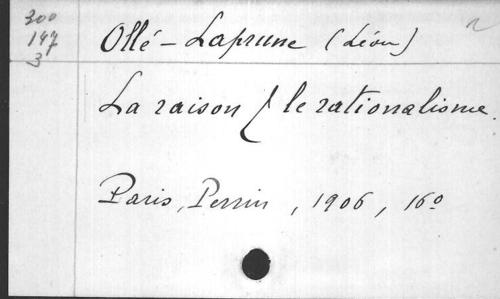 300
147
3
Ollé-Laprune (Léon)
La raison & le rationalisme.
Paris, Perrin, 1906, 16º